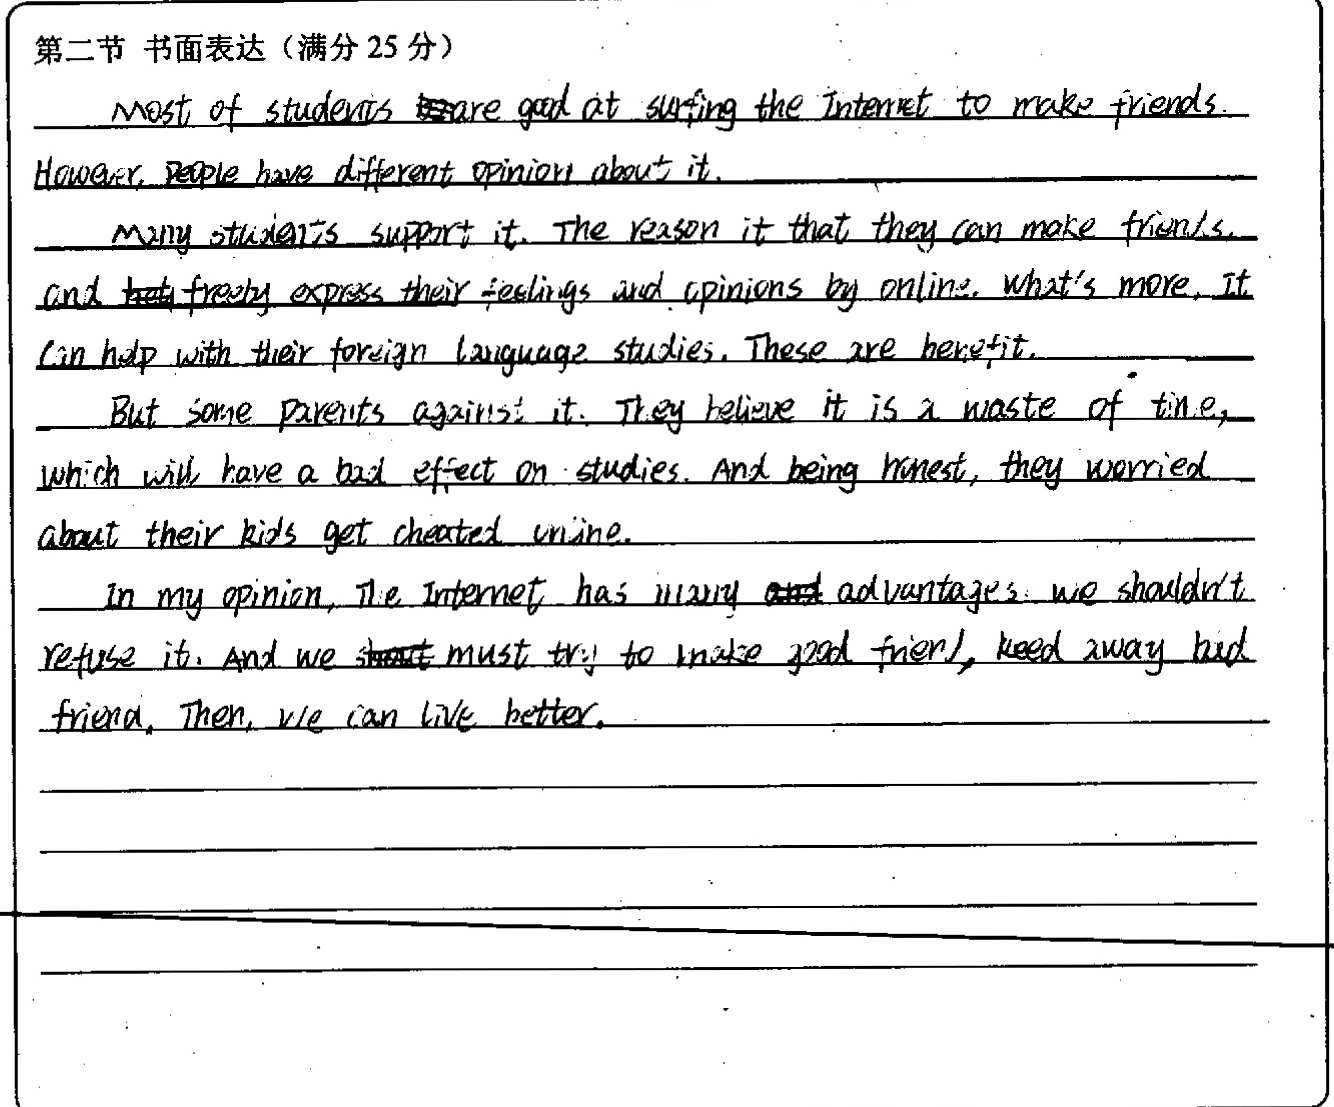 第二节 书面表达（满分 25 分）
Most of students are good at surfing the Internet to make friends.
However, People have different opinion about it.
Many students support it. The reason it that they can make friends.
and freely express their feelings and opinions by online. What's more, It
can help with their foreign language studies. These are benefit.
But some parents against it. They believe it is a waste of time,
which will have a bad effect on studies. And being honest, they worried
about their kids get cheated online.
In my opinion, The Internet has many advantages. we shouldn't
refuse it. And we must try to make good friend, keed away bad
friend. Then, we can live better.